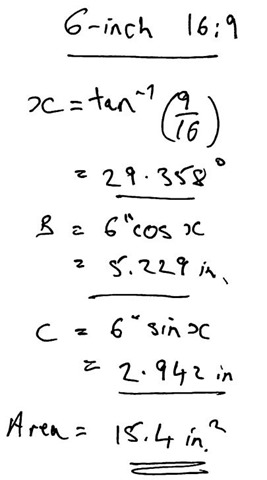 6-inch 16:9
x = tan⁻¹ (9/16)
= 29.358°
B = 6" cos x
= 5.229 in.
C = 6" sin x
= 2.942 in
Area = 15.4 in.²